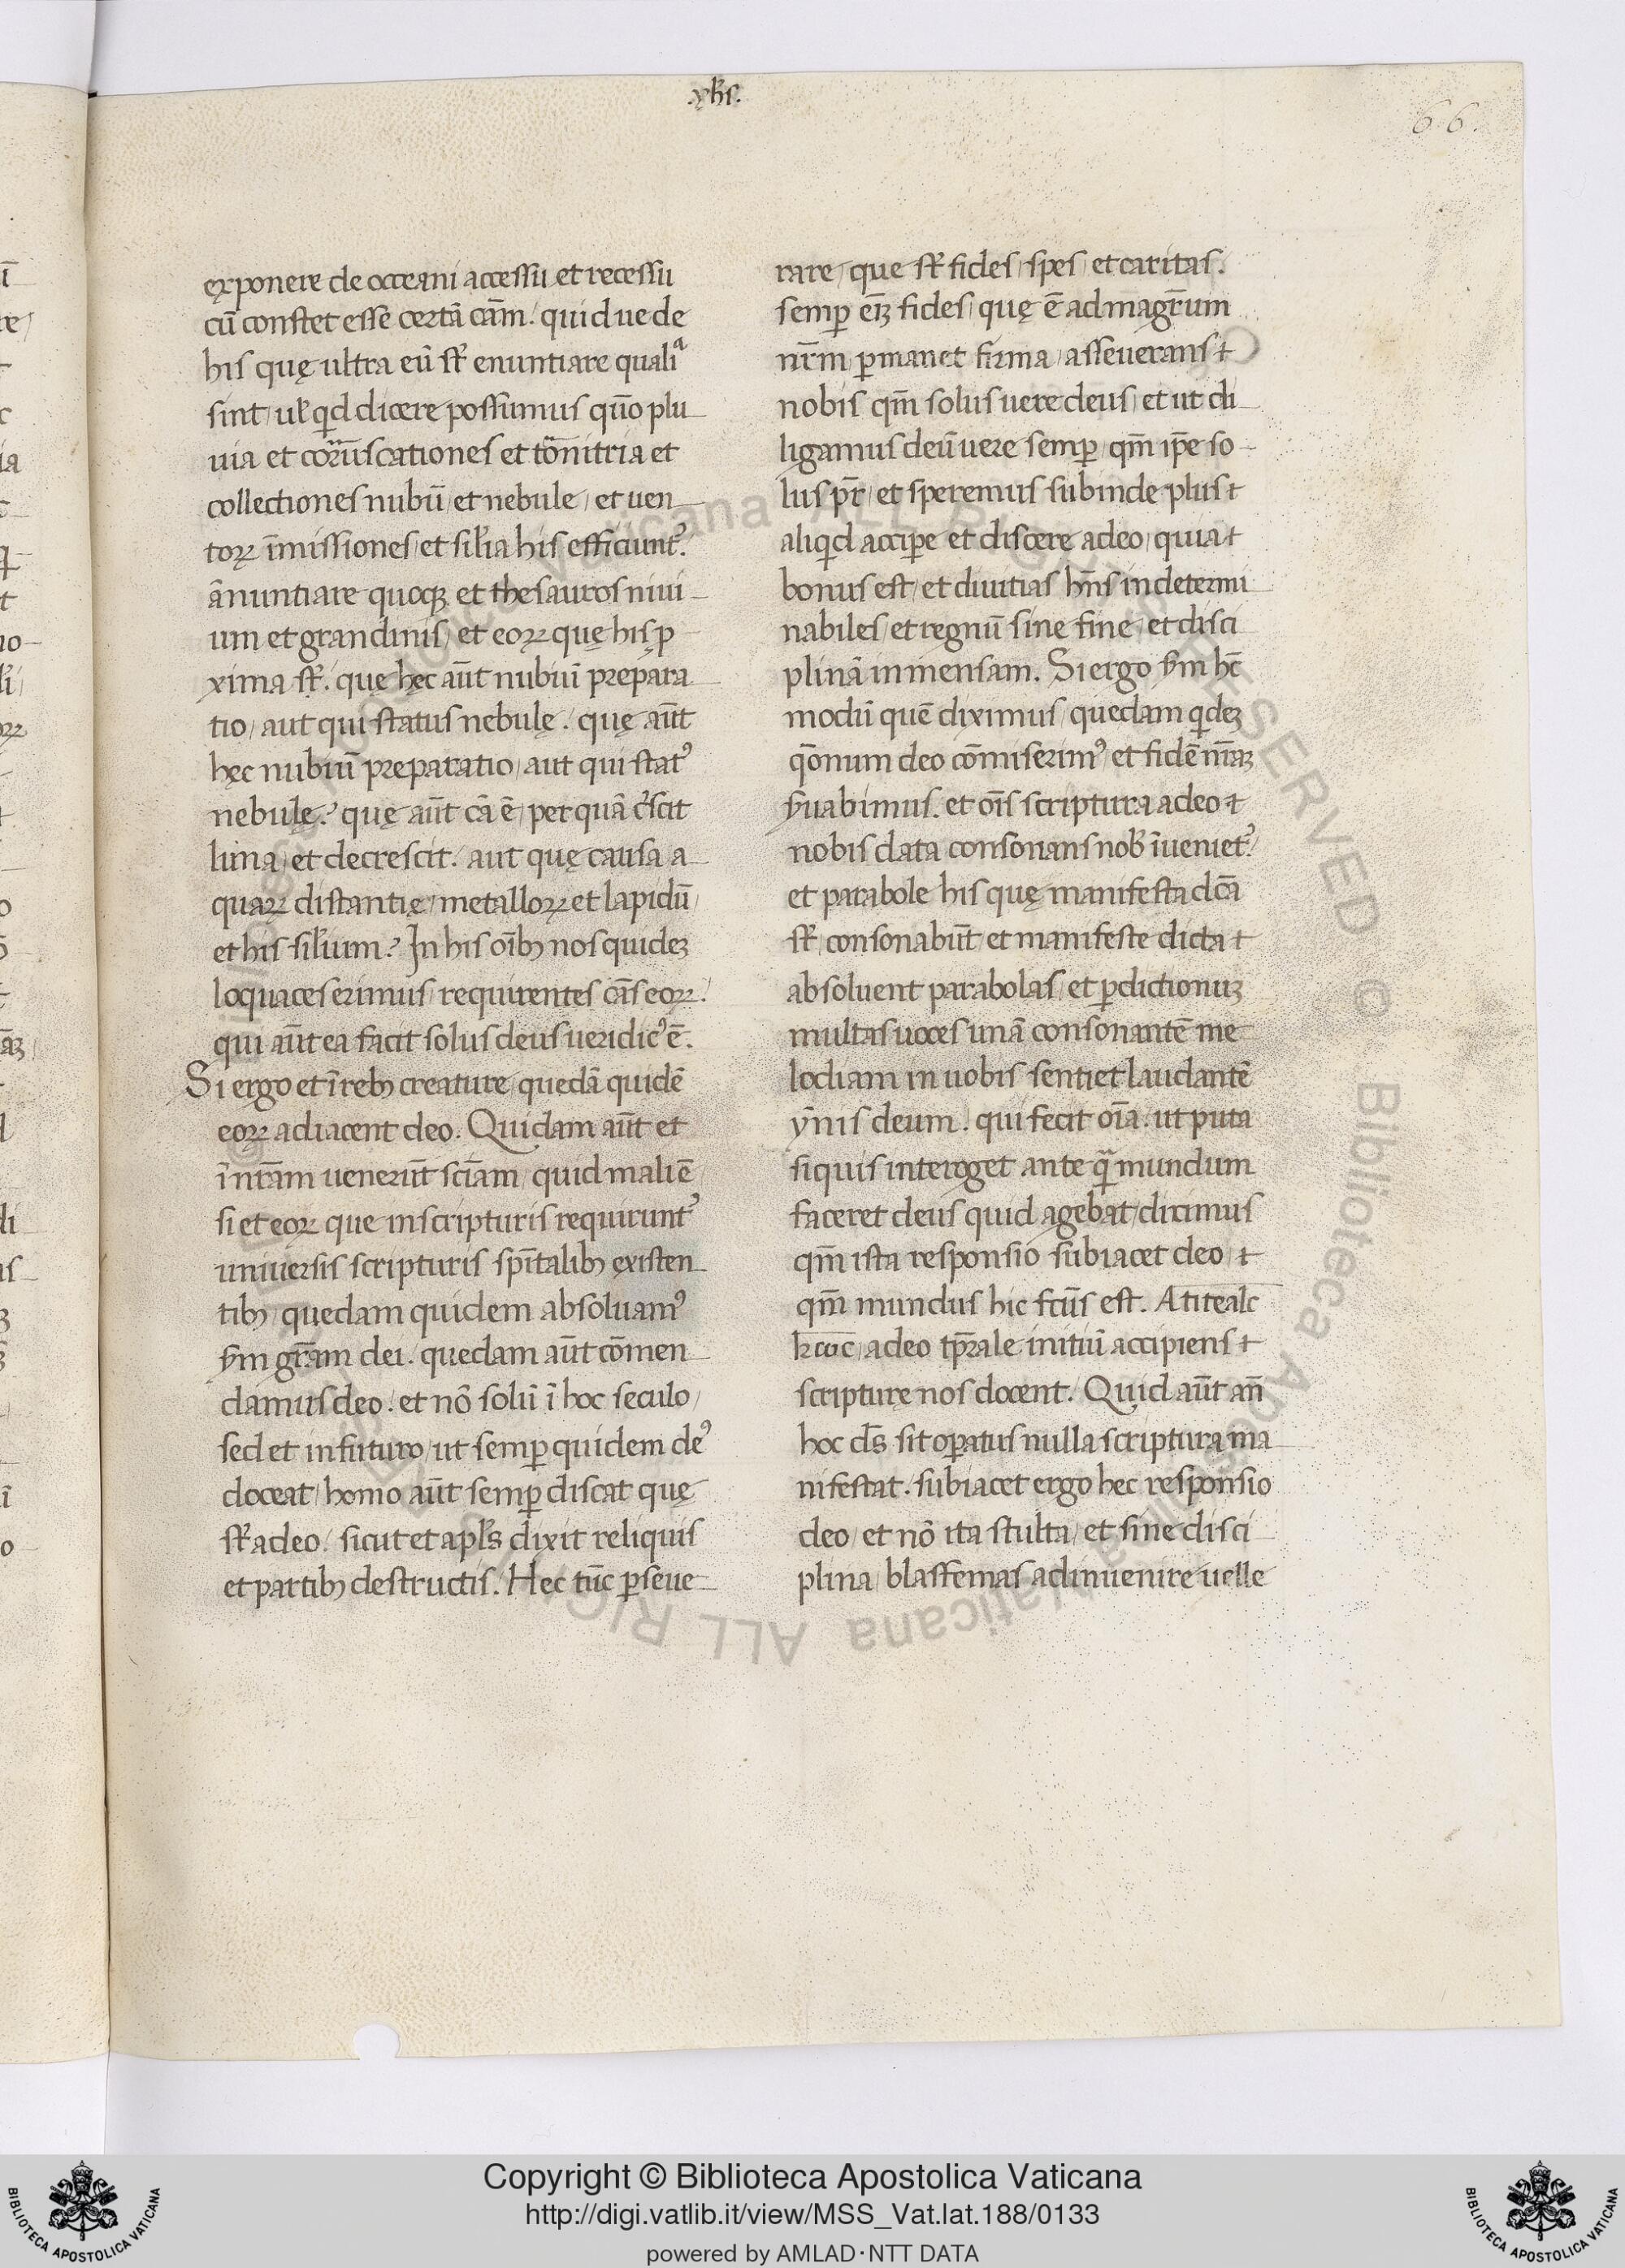 .yħs.
66.
exponere de occeani accessu et recessu
cū constet esse certā cām. quid ue de
his quę ultra eū sť enuntiare qualia
sint, uł qd dicere possumus quō plu-
uia et coruscationes et tonitria et
collectiones nubū, et nebule, et uen-
toꝝ īmissiones, et siłia his efficiunt᾿.
ānuntiare quoqꝫ et thesauros niui-
um et grandinis, et eoꝝ quę his ꝓ
xima sť. que hęc aūt nubiū prepara-
tio, aut qui status nebulę. quę aūt
hęc nubiū preparatio, aut qui stat᾿
nebulę? quę aūt cā ē, per quā cr̄scit
luna, et decrescit. aut quę causa a-
quaꝝ distantię, metalloꝝ et lapidū,
et his siłium? In his oībꝫ nos quideꝫ
loquaces erimus, requirentes cās eoꝝ.
qui aūt ea facit solus deus ueridic᾿ ē.
Si ergo et ī rebꝫ creature, quedā quidē
eoꝝ adiacent deo. Quidam aūt et
ī nr̄am uenerūt sciām, quid mali ē
si et eoꝝ que in scripturis requirunt᾿
uniuersis scripturis spītalibꝫ existen-
tibꝫ, quedam quidem absoluam᾿
s̄m gr̄am dei. quedam aūt cōmen-
damus deo. et nō solū ī hoc seculo,
sed et in futuro, ut semꝑ quidem de᾿
doceat, homo aūt semꝑ discat quę
sť a deo. sicut et apłs dixit reliquis
et partibꝫ destructis. Hec tūc ꝑseue-
rare, que sť fides, spes, et caritas.
semꝑ eīꝫ fides, quę ē ad magr̄um
nr̄m, ꝑmanet firma, asseuerans t
nobis qm̄ solus uere deus, et ut di-
ligamus deū uere semꝑ, qm̄ ip̄e so-
lus pr̄, et speremus subinde plus t
aliqd acciꝑe et discere a deo, quia t
bonus est, et diuitias hn̄s indetermi-
nabiles, et regnū sine fine, et disci-
plinā inmensam. Si ergo s̄m hc̄
modū quē diximus, quedam qdeꝫ
qōnum deo cōmiserim᾿ et fidē nr̄aꝫ
s̄uabimus. et oīs scriptura a deo t
nobis data consonans nob̄ īueniet᾿.
et parabole his quę manifesta dcā
sť, consonabūt et manifeste dicta t
absoluent parabolas, et ꝑ dictionuꝫ
multas uoces unā consonantē me-
lodiam in uobis sentiet laudantē
ȳnis deum. qui fecit oīa. ut puta
si quis interoget ante q̄ mundum
faceret deus quid agebat, dicimus
qm̄ ista responsio subiacet deo, t
qm̄ mundus hic fcūs est.
a deo tp̄rale initiū accipiens t
scripturę nos docent. Quid aūt añ
hoc ds̄ sit oꝑatus nulla scriptura ma-
nifestat. subiacet ergo hec responsio
deo, et nō ita stulta, et sine disci-
plina, blasfemas adinuenire uelle
Copyright © Biblioteca Apostolica Vaticana
http://digi.vatlib.it/view/MSS_Vat.lat.188/0133
powered by AMLAD·NTT DATA
BIBLIOTECA APOSTOLICA VATICANA
BIBLIOTECA APOSTOLICA VATICANA